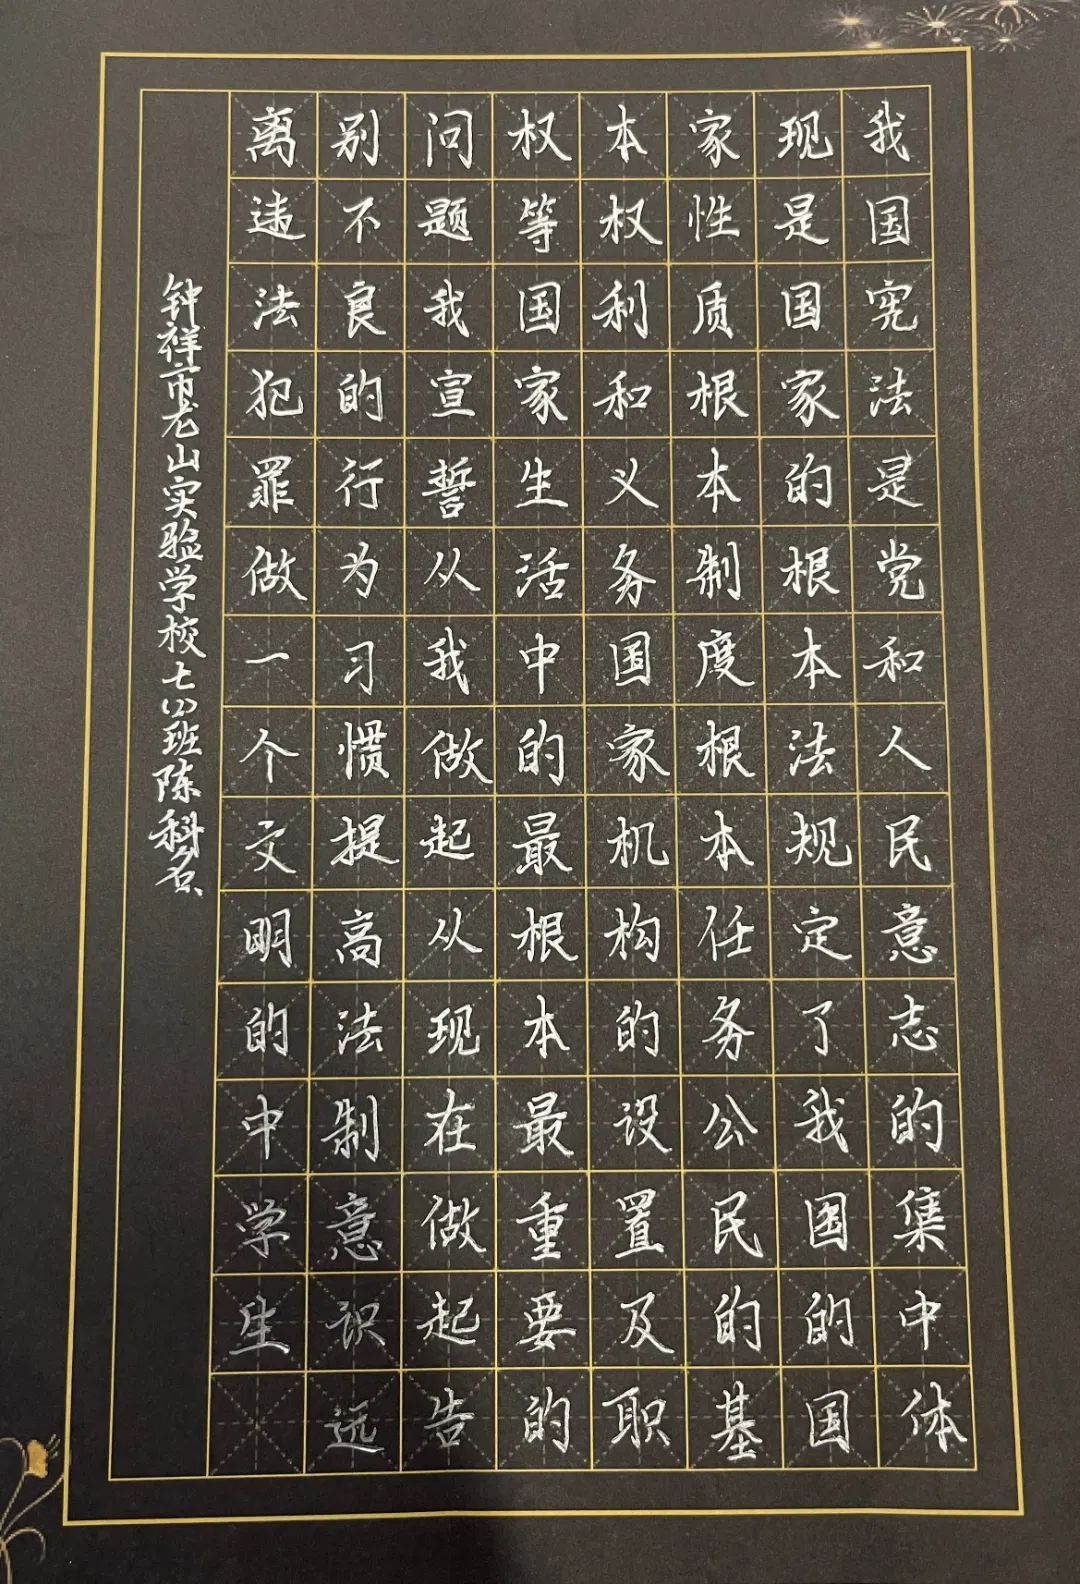 我国宪法是党和人民意志的集中体
现是国家的根本法规定了我国的国
家性质根本制度根本任务公民的基
本权利和义务国家机构的设置及职
权等国家生活中的最根本最重要的
问题我宣誓从我做起从现在做起告
别不良的行为习惯提高法制意识远
离违法犯罪做一个文明的中学生
钟祥市龙山实验学校七(1)班陈科